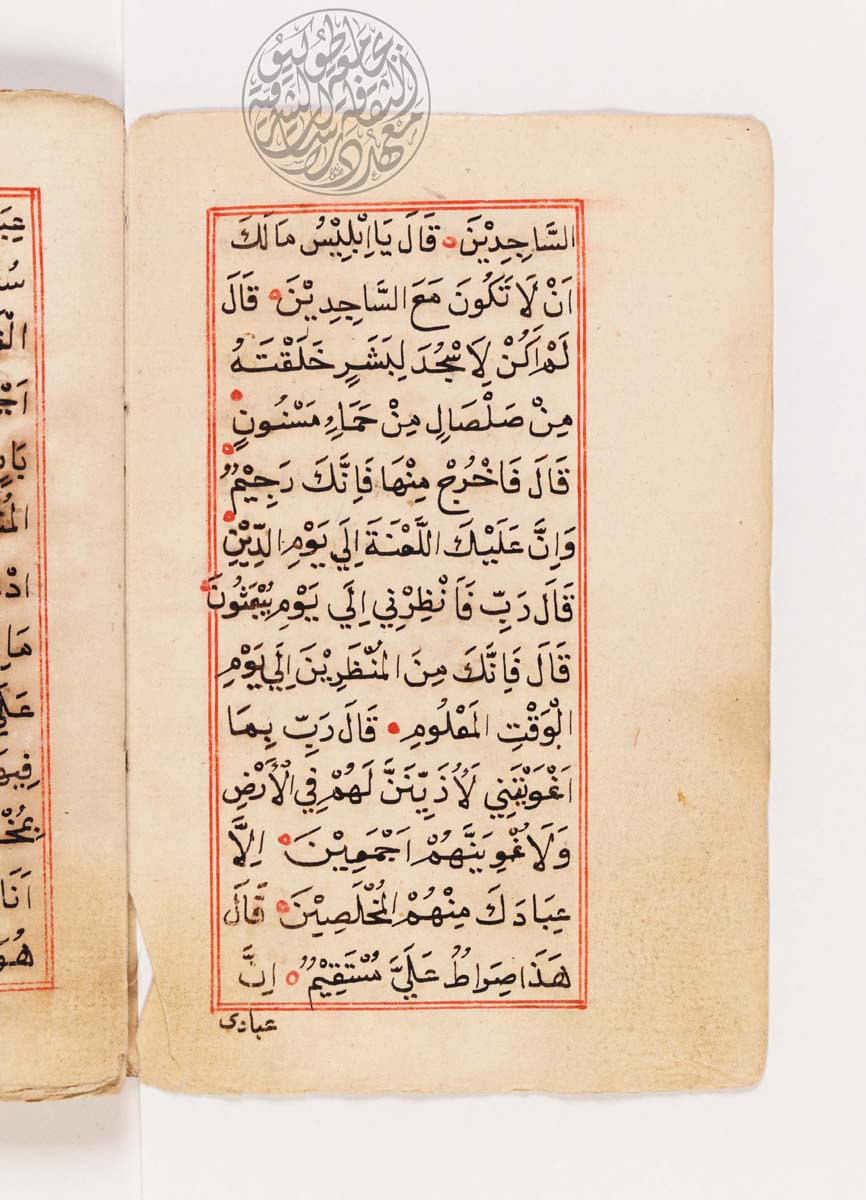 السَّاجِدِيْنَ قَالَ يَا اِبْلِيْسُ مَالَكَ
اَنْ لَا تَكُونَ مَعَ السَّاجِدِيْنَ قَالَ
لَمْ اَكُنْ لِاَسْجُدَ لِبَشَرٍ خَلَقْتَهُ
مِنْ صَلْصَالٍ مِنْ حَمَاءٍ مَسْنُونٍ
قَالَ فَاخْرُجْ مِنْهَا فَاِنَّكَ رَجِيْمٌ
وَاِنَّ عَلَيْكَ اللَّعْنَةَ اِلَي يَوْمِ الدِّيْنِ
قَالَ رَبِّ فَاَنْظِرْنِي اِلَي يَوْمِ يُبْعَثُونَ
قَالَ فَاِنَّكَ مِنَ الْمُنْظَرِيْنَ اِلَي يَوْمِ
الْوَقْتِ الْمَعْلُومِ قَالَ رَبِّ بِمَا
اَغْوَيْتَنِي لَاُزَيِّنَنَّ لَهُمْ فِي الْاَرْضِ
وَلَاُغْوِيَنَّهُمْ اَجْمَعِيْنَ اِلَّا
عِبَادَكَ مِنْهُمْ الْمُخْلَصِيْنَ قَالَ
هَذَا صِرَاطٌ عَلَيَّ مُسْتَقِيْمٌ اِنَّ
عبادي